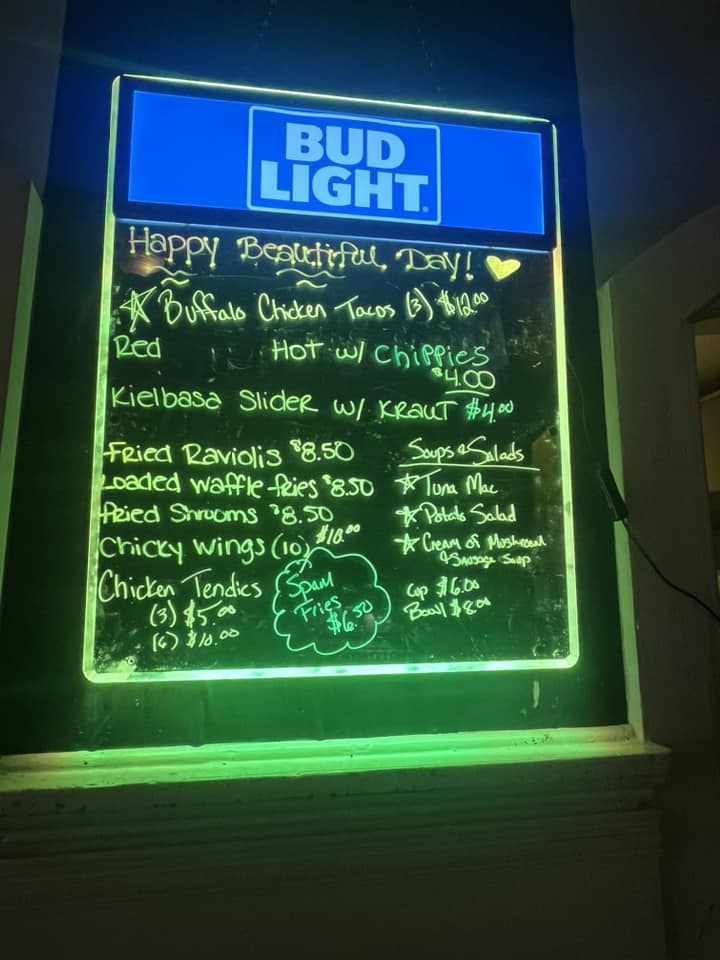 BUD
LIGHT
Happy Beautiful Day!
Buffalo Chicken Tacos (3) $12.00
Red Hot w/ Chippies
$4.00
Kielbasa Slider w/ Kraut $4.00
Fried Raviolis $8.50
Loaded Waffle fries $8.50
Fried Shrooms $8.50
Chicky Wings (10) $10.00
Chicken Tendies
(3) $5.00
(6) $10.00
Spam
Fries
$6.50
Soups & Salads
Tuna Mac
Potato Salad
Cream of Mushroom
& Sausage Soup
Cup $6.00
Bowl $8.00